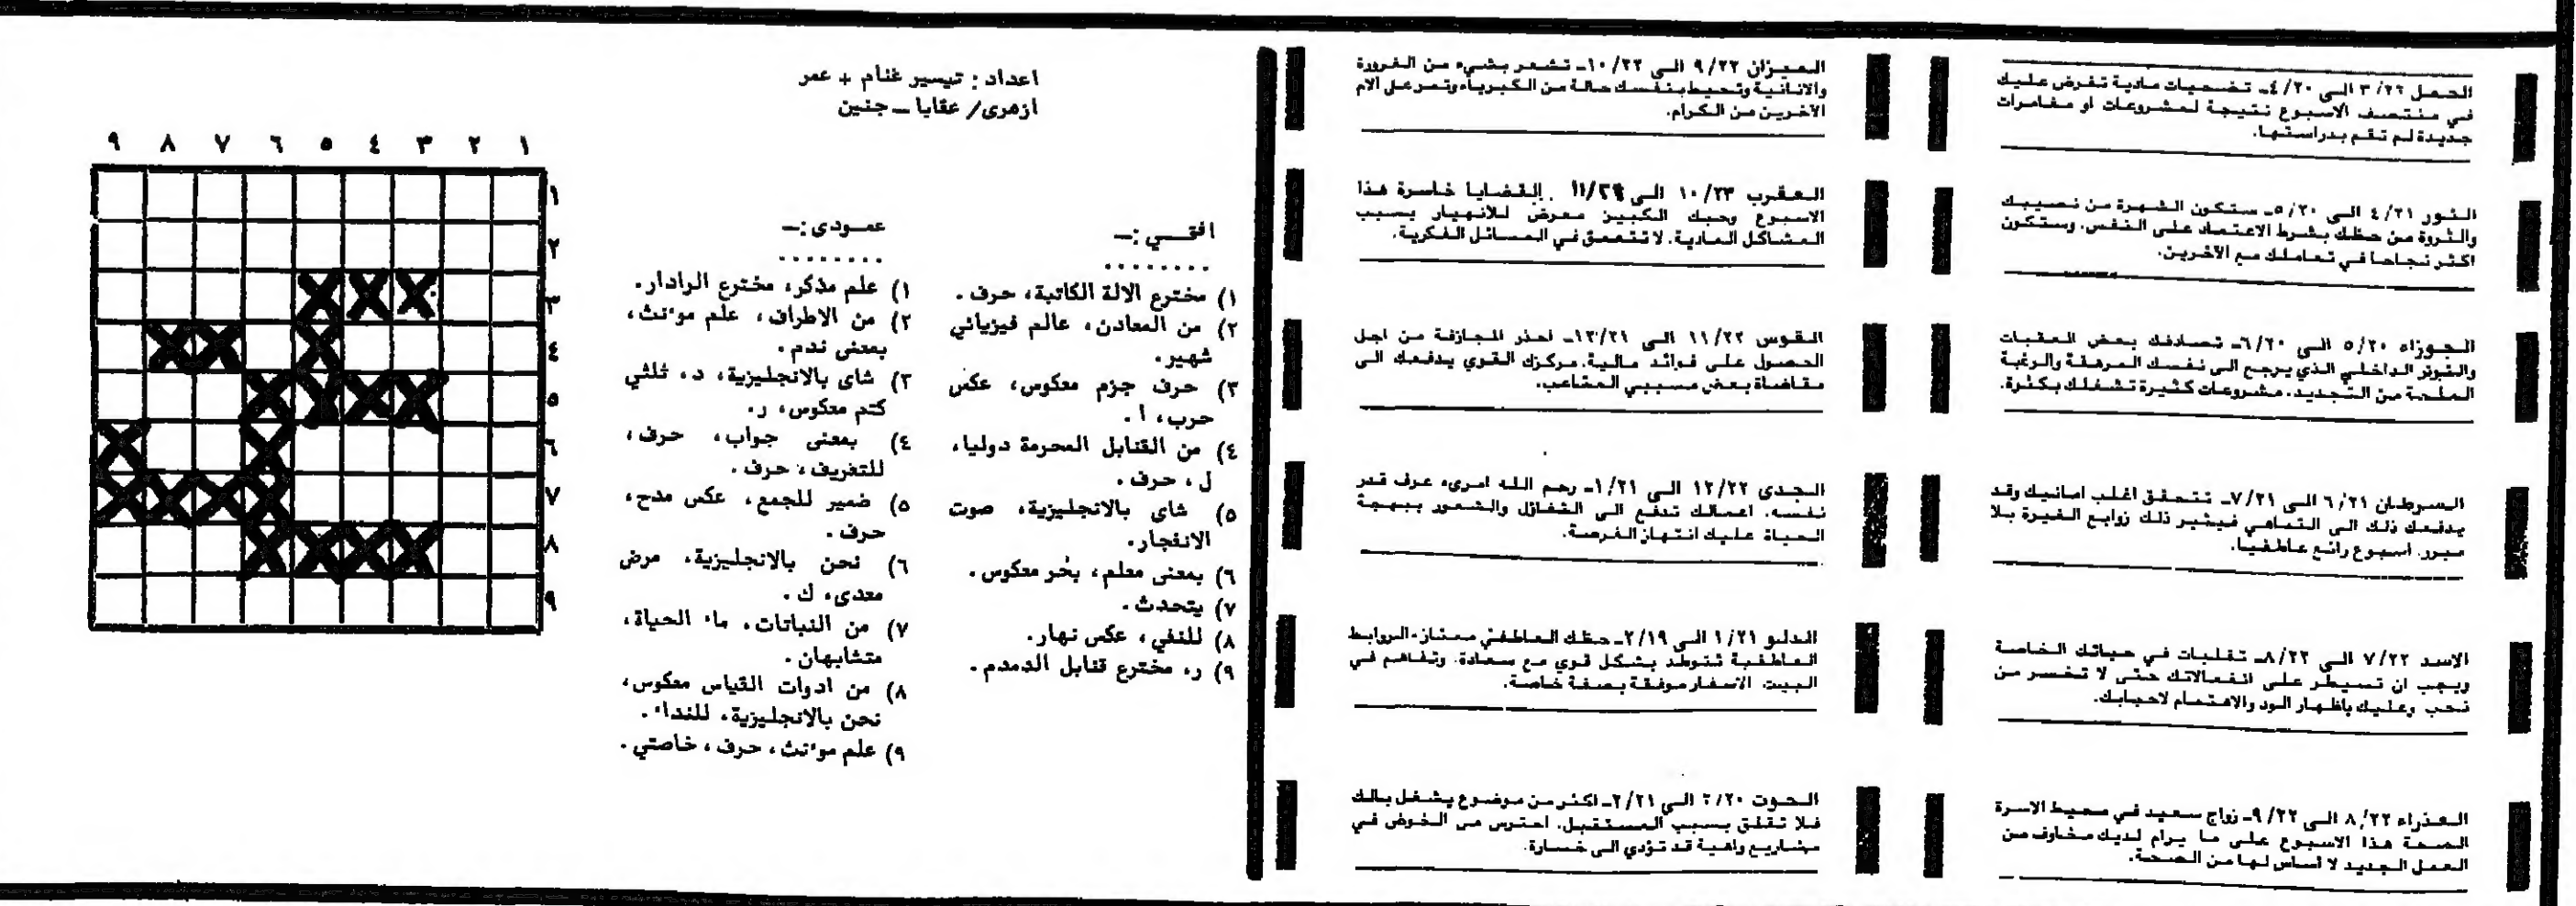 الحمل ٣/٢٢ الى ٤/٢٠ـ تضحيات مادية تفرض عليك
في منتصف الاسبوع نتيجة لمشروعات او مغامرات
جديدة لم تقم بدراستها.
الثور ٤/٢١ الى ٥/٢٠ـ ستكون الشهرة من نصيبك
والثروة من حظك بشرط الاعتماد على النفس. وستكون
اكثر نجاحا في تعاملك مع الآخرين.
الجوزاء ٥/٢٠ الى ٦/٢٠ـ تصادفك بعض العقبات
والتوتر الداخلي الذي يرجع الى نفسك المرهقة والرغبة
الملحة من التجديد. مشروعات كثيرة تشغلك بكثرة.
السرطان ٦/٢١ الى ٧/٢١ـ تتحقق اغلب امانيك وقد
يدفعك ذلك الى التماهي فيثير ذلك زوابع الغيرة بلا
مبرر. اسبوع رائع عاطفيا.
الاسد ٧/٢٢ الى ٨/٢٢ـ تقلبات في حياتك الخاصة
ويجب ان تسيطر على انفعالاتك حتى لا تخسر من
تحب وعليك باظهار الود والاهتمام لاحبابك.
العذراء ٨/٢٢ الى ٩/٢٢ـ زواج سعيد في محيط الاسرة
الصحة هذا الاسبوع على ما يرام لديك مخاوف من
العمل الجديد لا اساس لها من الصحة.
الميزان ٩/٢٢ الى ١٠/٢٢ـ تشعر بشيء من الغرورة
والانانية وتحيط بنفسك حالة من الكبرياء وتمر على آلام
الآخرين من الكرام.
العقرب ١٠/٢٣ الى ١١/٢٩. القضايا خاسرة هذا
الاسبوع وحبك الكبين معرض للانهيار بسبب
المشاكل المادية. لا تتعمق في المسائل الفكرية.
القوس ١١/٢٢ الى ١٢/٢١ـ احذر المجازفة من اجل
الحصول على فوائد مالية. مركزك القوي يدفعك الى
مقاضاة بعض مسببي المتاعب.
الجدى ١٢/٢٢ الى ١/٢١ـ رحم الله امرىء عرف قدر
نفسه. اعمالك تدفع الى التفاؤل والشعور ببهجة
الحياة عليك انتهاز الفرصة.
الدلو ١/٢١ الى ٢/١٩ـ حظك العاطفي ممتاز. الروابط
العاطفية تتوطد بشكل قوي مع سعادة. وتفاهم في
البيت. الاسفار موفقة بصفة خاصة.
الحوت ٢/٢٠ الى ٢/٢١ـ اكثر من موضوع يشغل بالك
فلا تقلق بسبب المستقبل. احترس من الخوض في
مشاريع واهية قد تؤدي الى خسارة.
اعداد : تيسير غنام + عمر
ازهرى/ عقابا ـ جنين
افقـــي :ـ
........
١) مخترع الالة الكاتبة، حرف .
٢) من المعادن، عالم فيزيائي
شهير.
٣) حرف جزم معكوس، عكس
حرب، ا .
٤) من القنابل المحرمة دوليا،
ل ، حرف .
٥) شاى بالانجليزية، صوت
الانفجار.
٦) بمعنى معلم ، بحر معكوس .
٧) يتحدث .
٨) للنفي ، عكس نهار.
٩) ر، مخترع قنابل الدمدم .
عمــودى :ـ
........
١) علم مذكر، مخترع الرادار.
٢) من الاطراف، علم موءنث،
بمعنى ندم .
٣) شاى بالانجليزية، د، ثلثي
كتم معكوس، ر.
٤) بمعنى جواب، حرف،
للتعريف، حرف .
٥) ضمير للجمع، عكس مدح،
حرف .
٦) نحن بالانجليزية، مرض
معدى، ك .
٧) من النباتات، ماء الحياة،
متشابهان .
٨) من ادوات القياس معكوس،
نحن بالانجليزية، للنداء .
٩) علم موءنث، حرف، خاصتي .
٩ ٨ ٧ ٦ ٥ ٤ ٣ ٢ ١
١
٢
٣
٤
٥
٦
٧
٨
٩